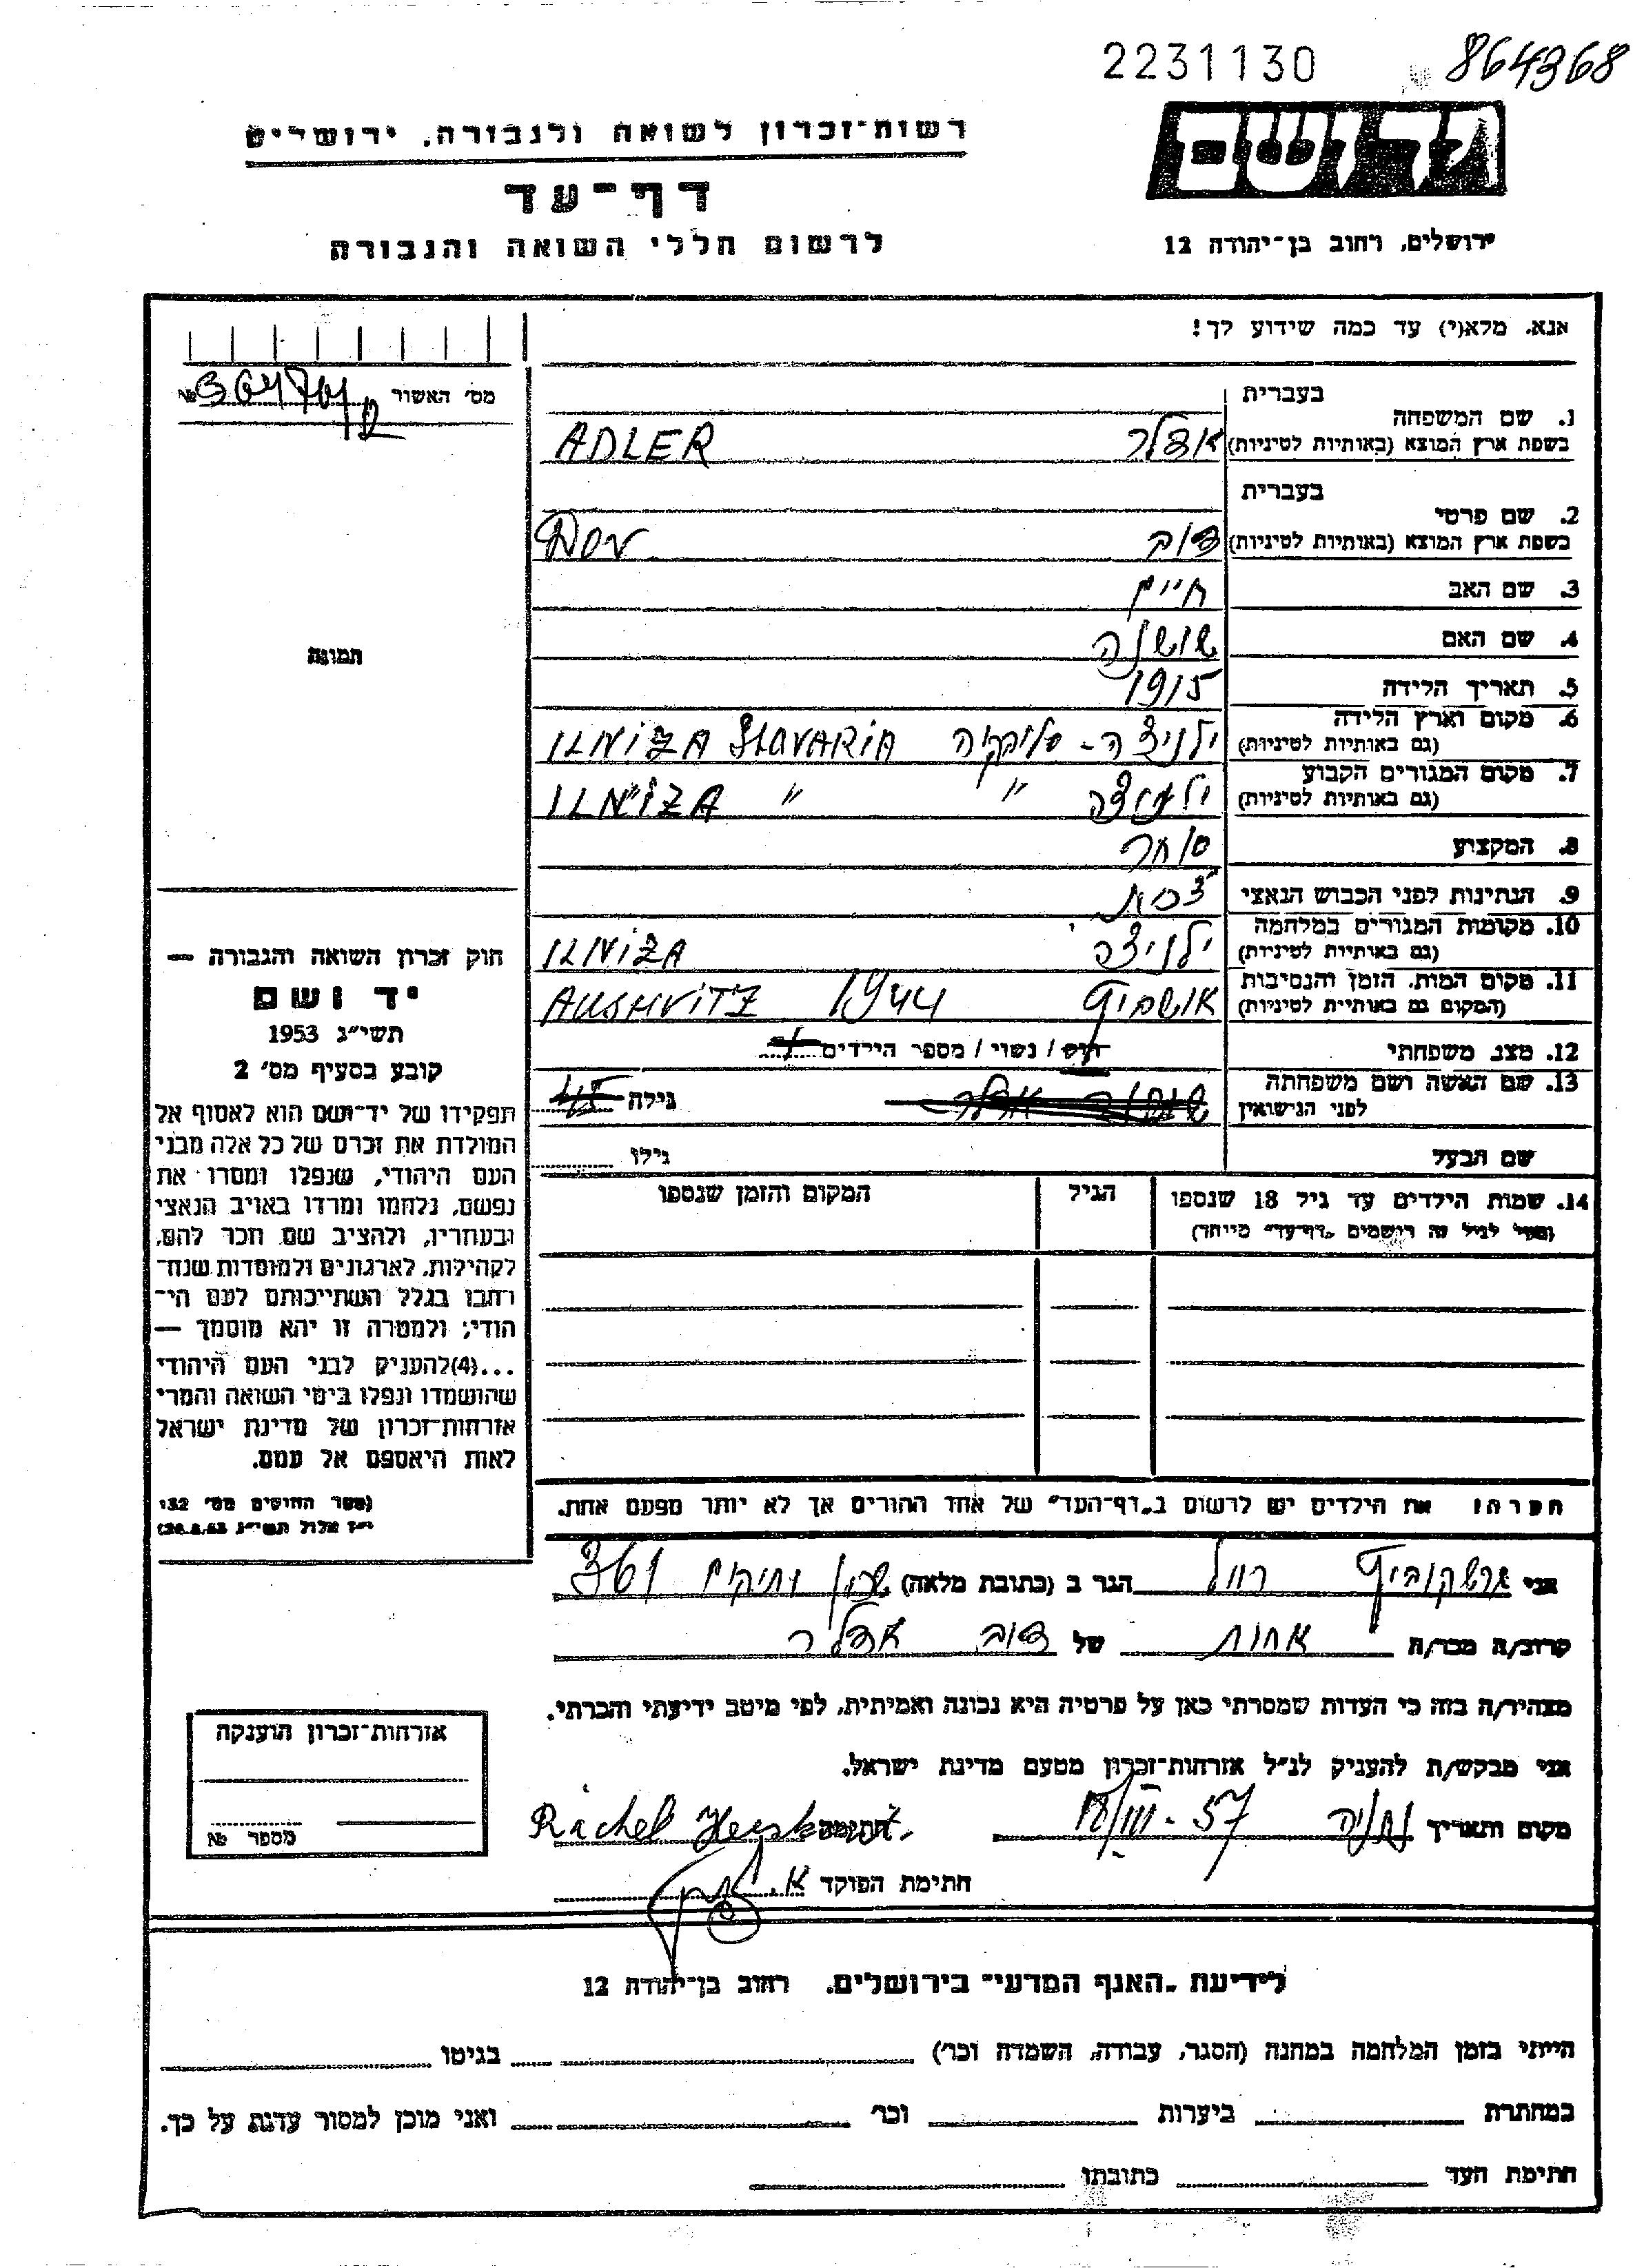 2231130 864368
רשות־זכרון לשואה ולגבורה, ירושלים
יד ושם
דף־עד
לרשום חללי השואה והגבורה
ירושלים, רחוב בן־יהודה 12
אנא, מלא(י) עד כמה שידוע לך!
מס' האשור №
1. שם המשפחה
בעברית
בשפת ארץ המוצא (באותיות לטיניות)
אדלר ADLER
2. שם פרטי
בעברית
בשפת ארץ המוצא (באותיות לטיניות)
דוב Dov
3. שם האב חיים
4. שם האם שושנה
5. תאריך הלידה 1915
6. מקום וארץ הלידה
(גם באותיות לטיניות)
ילניצה - סלובקיה ILNIZA SLAVAKIA
7. מקום המגורים הקבוע
(גם באותיות לטיניות)
ילניצה " ILNIZA "
8. המקצוע סוחר
9. הנתינות לפני הכבוש הנאצי צ'כית
10. מקומות המגורים במלחמה
(גם באותיות לטיניות)
ילניצה ILNIZA
11. מקום המות, הזמן והנסיבות
(המקום גם באותיות לטיניות)
אושביץ 1944 AUSHVITZ
12. מצב משפחתי רוק / נשוי / מספר הילדים
13. שם האשה ושם משפחתה
לפני הנישואין
גילה
שם הבעל גילו
14. שמות הילדים עד גיל 18 שנספו
(מעל לגיל זה רושמים "דף־עד" מיוחד)
הגיל
המקום והזמן שנספו
הערה: את הילדים יש לרשום ב"דף־העד" של אחד ההורים אך לא יותר מפעם אחת.
תמונה
חוק זכרון השואה והגבורה —
יד ושם
תשי"ג 1953
קובע בסעיף מס' 2
תפקידו של יד־ושם הוא לאסוף אל
המולדת את זכרם של כל אלה מבני
העם היהודי, שנפלו ומסרו את
נפשם, נלחמו ומרדו באויב הנאצי
ובעוזריו, ולהציב שם וזכר להם,
לקהילות, לארגונים ולמוסדות שנח־
רבו בגלל השתייכותם לעם הי־
הודי; ולמטרה זו יהא מוסמך —
...(4)להעניק לבני העם היהודי
שהושמדו ונפלו בימי השואה והמרי
אזרחות־זכרון של מדינת ישראל
לאות היאספם אל עמם.
(ספר החוקים מס' 132
י"ז אלול תשי"ג 28.8.53)
אני הרשקוביץ רחל הגר ב (כתובת מלאה) שכון ותיקים 361
קרוב/ה מכר/ה אחות של דוב אדלר
מצהיר/ה בזה כי העדות שמסרתי כאן על פרטיה היא נכונה ואמיתית, לפי מיטב ידיעתי והכרתי.
אני מבקש/ת להעניק לנ"ל אזרחות־זכרון מטעם מדינת ישראל.
מקום ותאריך נתניה 18/III-57 חתימה Rachel Herskovitz
חתימת הפוקד
אזרחות־זכרון הוענקה
מספר №
לידיעת "האגף המדעי" בירושלים, רחוב בן־יהודה 12
הייתי בזמן המלחמה במחנה (הסגר, עבודה, השמדה וכר') בגיטו
במחתרת ביערות וכר' ואני מוכן למסור עדות על כך.
חתימת העד כתובתו